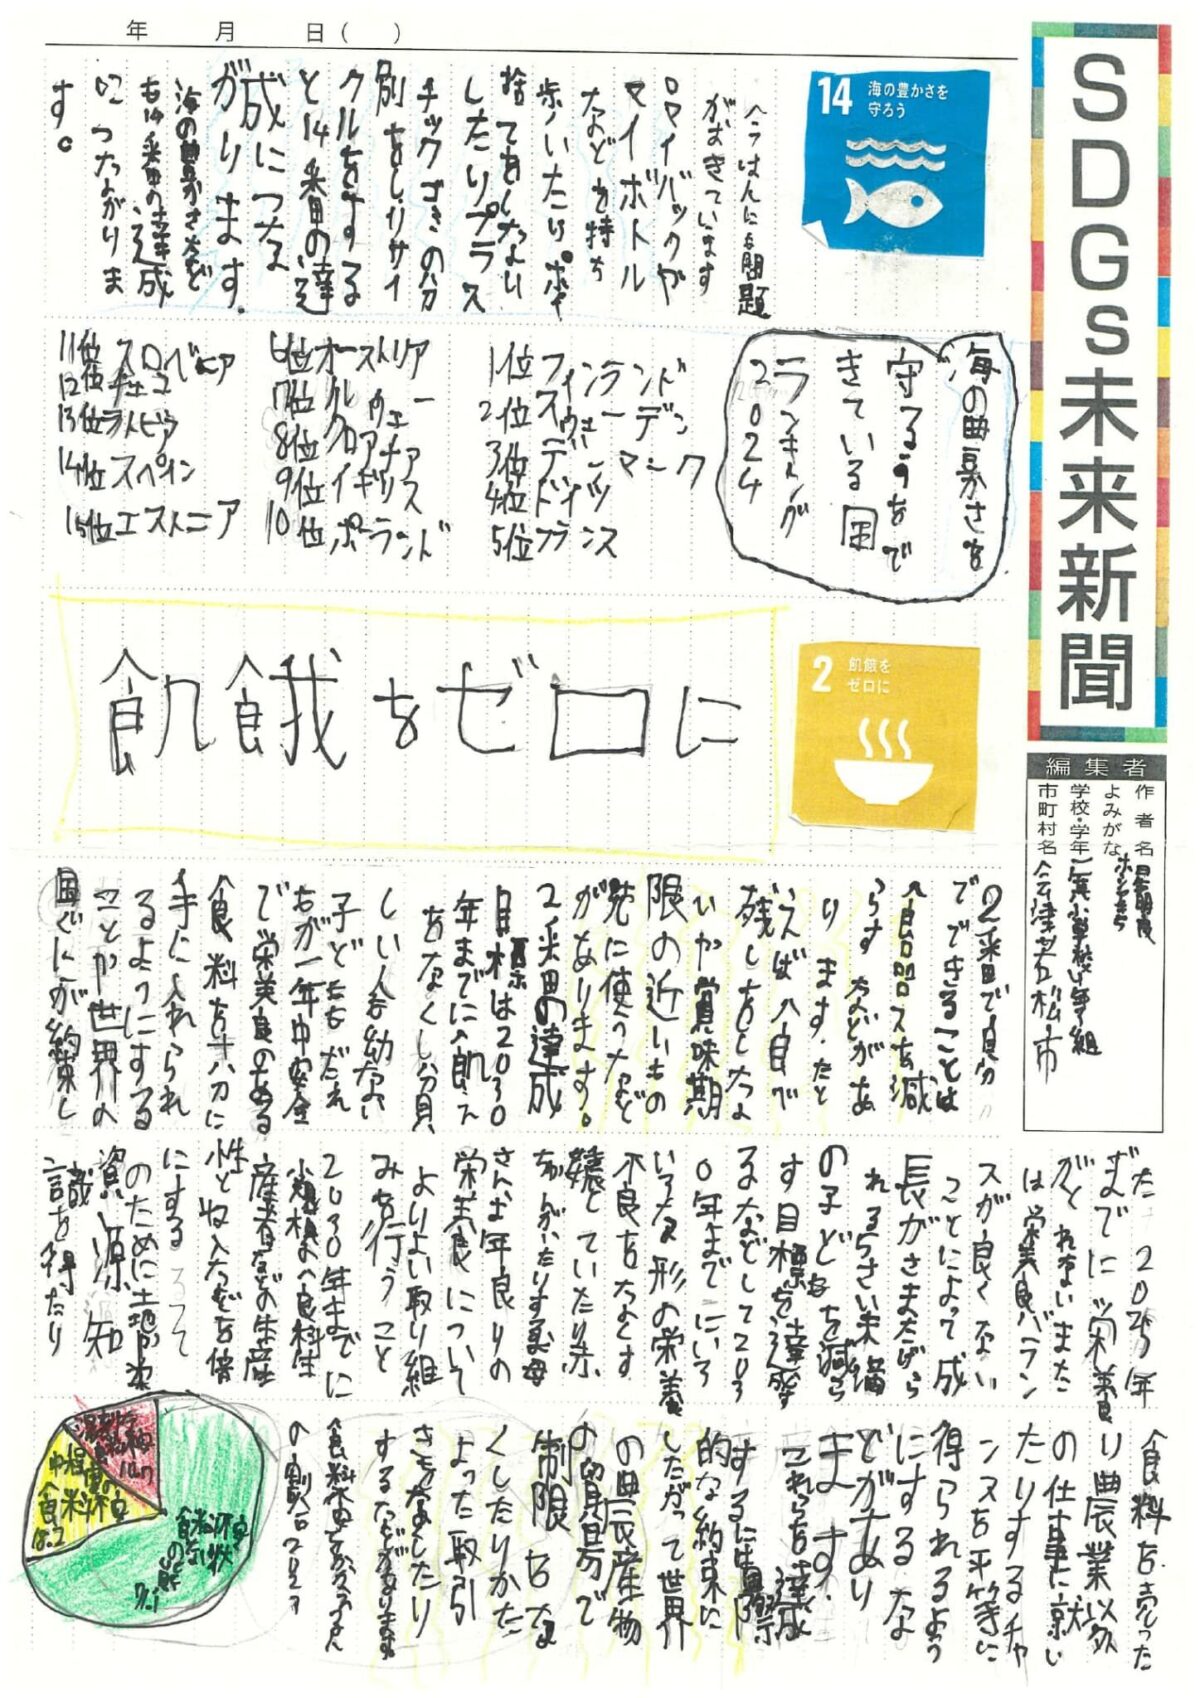 SDGs未来新聞
編集者
作者名
よみがな
学校・学年
市町村名 会津若松市
年 月 日( )
14 海の豊かさを
守ろう
がおきています
マイバックや
マイボトル
などを持ち
歩いたり。ポイ
捨てをしない
したりプラス
チックゴミの分
別をしリサイ
クルをする
と14番目の達
成につな
がります。
海の豊かさなど
も14番目の達成
につながりま
す。
海の豊かさを
守るをで
きている国
ランキング
2024
1位フィンランド
2位スウェーデン
3位デンマーク
4位ドイツ
5位フランス
6位オーストリア
7位ノルウェー
8位クロアチア
9位イギリス
10位ポーランド
11位スロベニア
12位チェコ
13位ラトビア
14位スペイン
15位エストニア
2 飢餓を
ゼロに
飢餓をゼロに
2番目で自分
でできることは
食品ロスを減
らすなどがあ
ります。たと
えば、自分
残しをしな
いか賞味期
限の近いもの
先に使うなど
があります。
2番目の達成
目標は2030
年までに飢え
をなくし貧
しい人も幼ない
子どももだれ
もが一年中安全
で栄養のある
食料を十分に
手に入れられ
るようにする
ことが世界の
国ぐにが約束し
た 2025年
までに栄養
がとれないまた
は栄養バラン
スが良くない
ことによって成
長がさまたげら
れる5さい未満
の子どもを減ら
す目標を達成
るなどして203
0年までにいろ
いろな形の栄養
不良をなくす
娠していたり赤
ちゃんがいたりす母
さんお年良りの
栄養について
よりよい取り組
みを行うこと
2030年までに
小規模の食料生
産者などの生産
性と収入などを倍
にする
のために土地や
資源、知
識を得たり
食料を売った
り農業以外
の仕事に就い
たりするチャ
ンスを平等に
得られるよう
にするな
どがあり
ます。
これらを達成
するに国際
的な約束に
したがって世界
の農産物
の貿易で
制限をな
くしたりかた
よった取引
をなくしたり
するなどがあります。
の割合2023